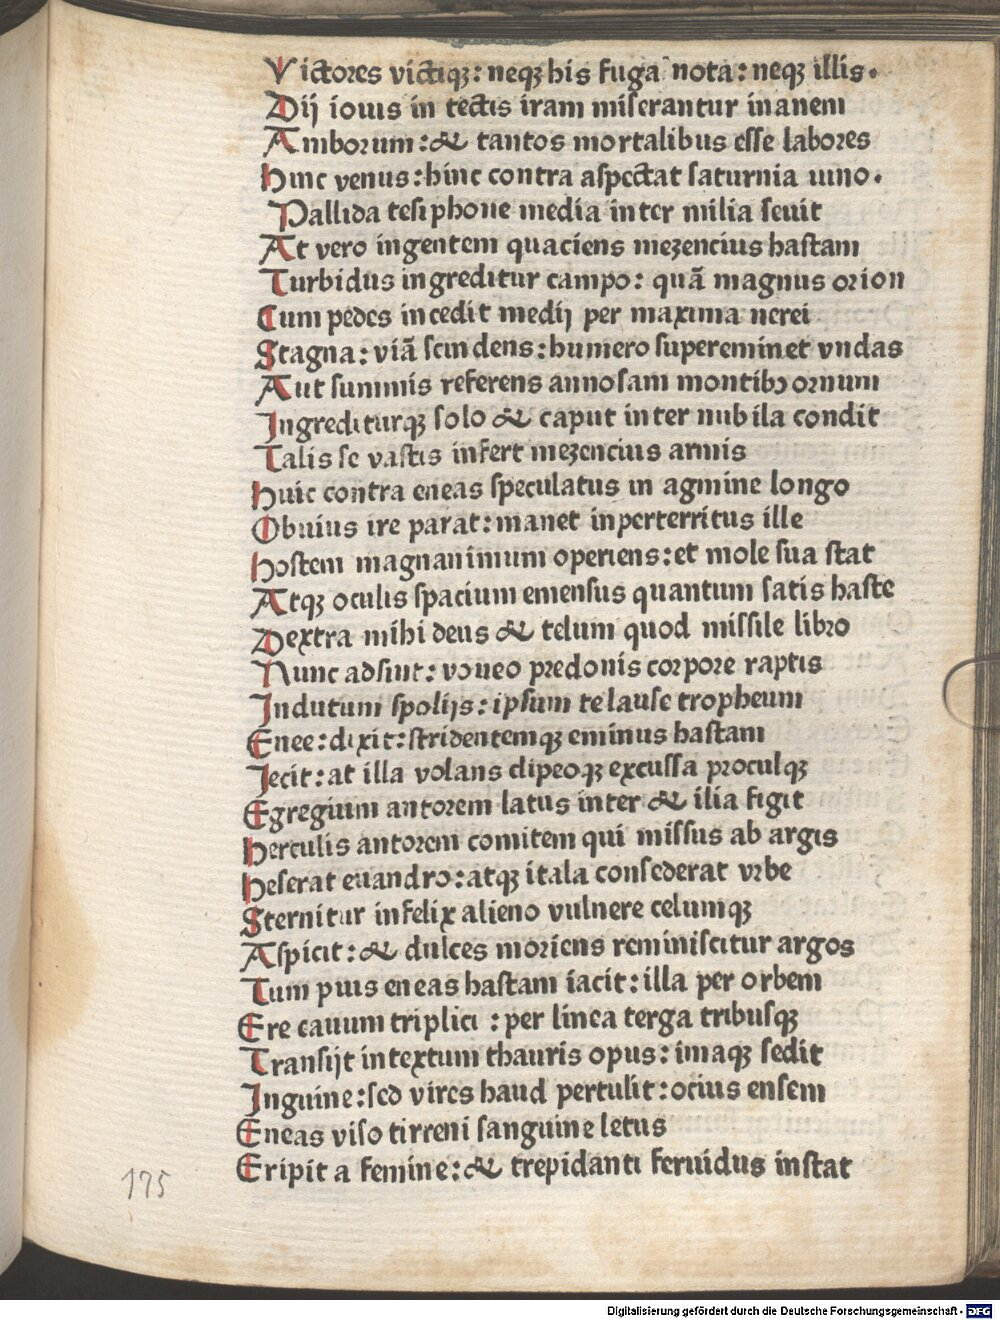 Victores victiqꝫ: neqꝫ his fuga nota: neqꝫ illis.
Dij iouis in tectis iram miserantur inanem
Amborum: & tantos mortalibus esse labores
hinc venus: hinc contra aspectat saturnia iuno.
Pallida tesiphone media inter milia seuit
At vero ingentem quaciens mezencius hastam
Turbidus ingreditur campo: quā magnus orion
Cum pedes incedit medij per maxima nerei
Stagna: viā scindens: humero supereminet vndas
Aut summis referens annosam montibꝫ ornum
Ingrediturqꝫ solo & caput inter nubila condit
Talis se vastis infert mezencius armis
huic contra eneas speculatus in agmine longo
Obuius ire parat: manet inperterritus ille
hostem magnanimum operiens: et mole sua stat
Atqꝫ oculis spacium emensus quantum satis haste
Dextra mihi deus & telum quod missile libro
Nunc adsint: voueo predonis corpore raptis
Indutum spolijs: ipsum te lause tropheum
Enee: dixit: stridentemqꝫ eminus hastam
Jecit: at illa volans clipeoqꝫ excussa proculqꝫ
Egregium antorem latus inter & ilia figit
herculis antorem comitem qui missus ab argis
heserat euandro: atqꝫ itala consederat vrbe
Sternitur infelix alieno vulnere celumqꝫ
Aspicit: & dulces moriens reminiscitur argos
Tum pius eneas hastam iacit: illa per orbem
Ere cauum triplici : per linea terga tribusqꝫ
Transijt intextum thauris opus: imaqꝫ sedit
Inguine: sed vires haud pertulit: ocius ensem
Eneas viso tirreni sanguine letus
Eripit a femine: & trepidanti feruidus instat
175
Digitalisierung gefördert durch die Deutsche Forschungsgemeinschaft - DFG